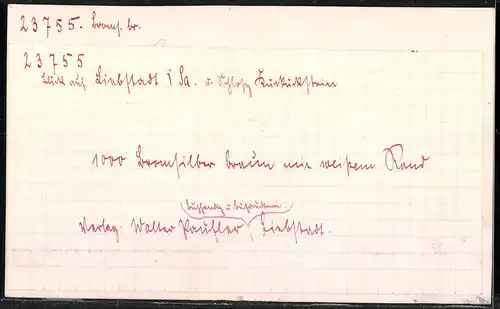 23755. Broms. br.
23755
Blick auf Liebstadt i Sa. u. Schloß Kuckuckstein
1000 Bromsilber braun mit weißem Rand
Buchhandlg u. Buchdruckerei.
Verlag. Walter Paufler, Liebstadt.